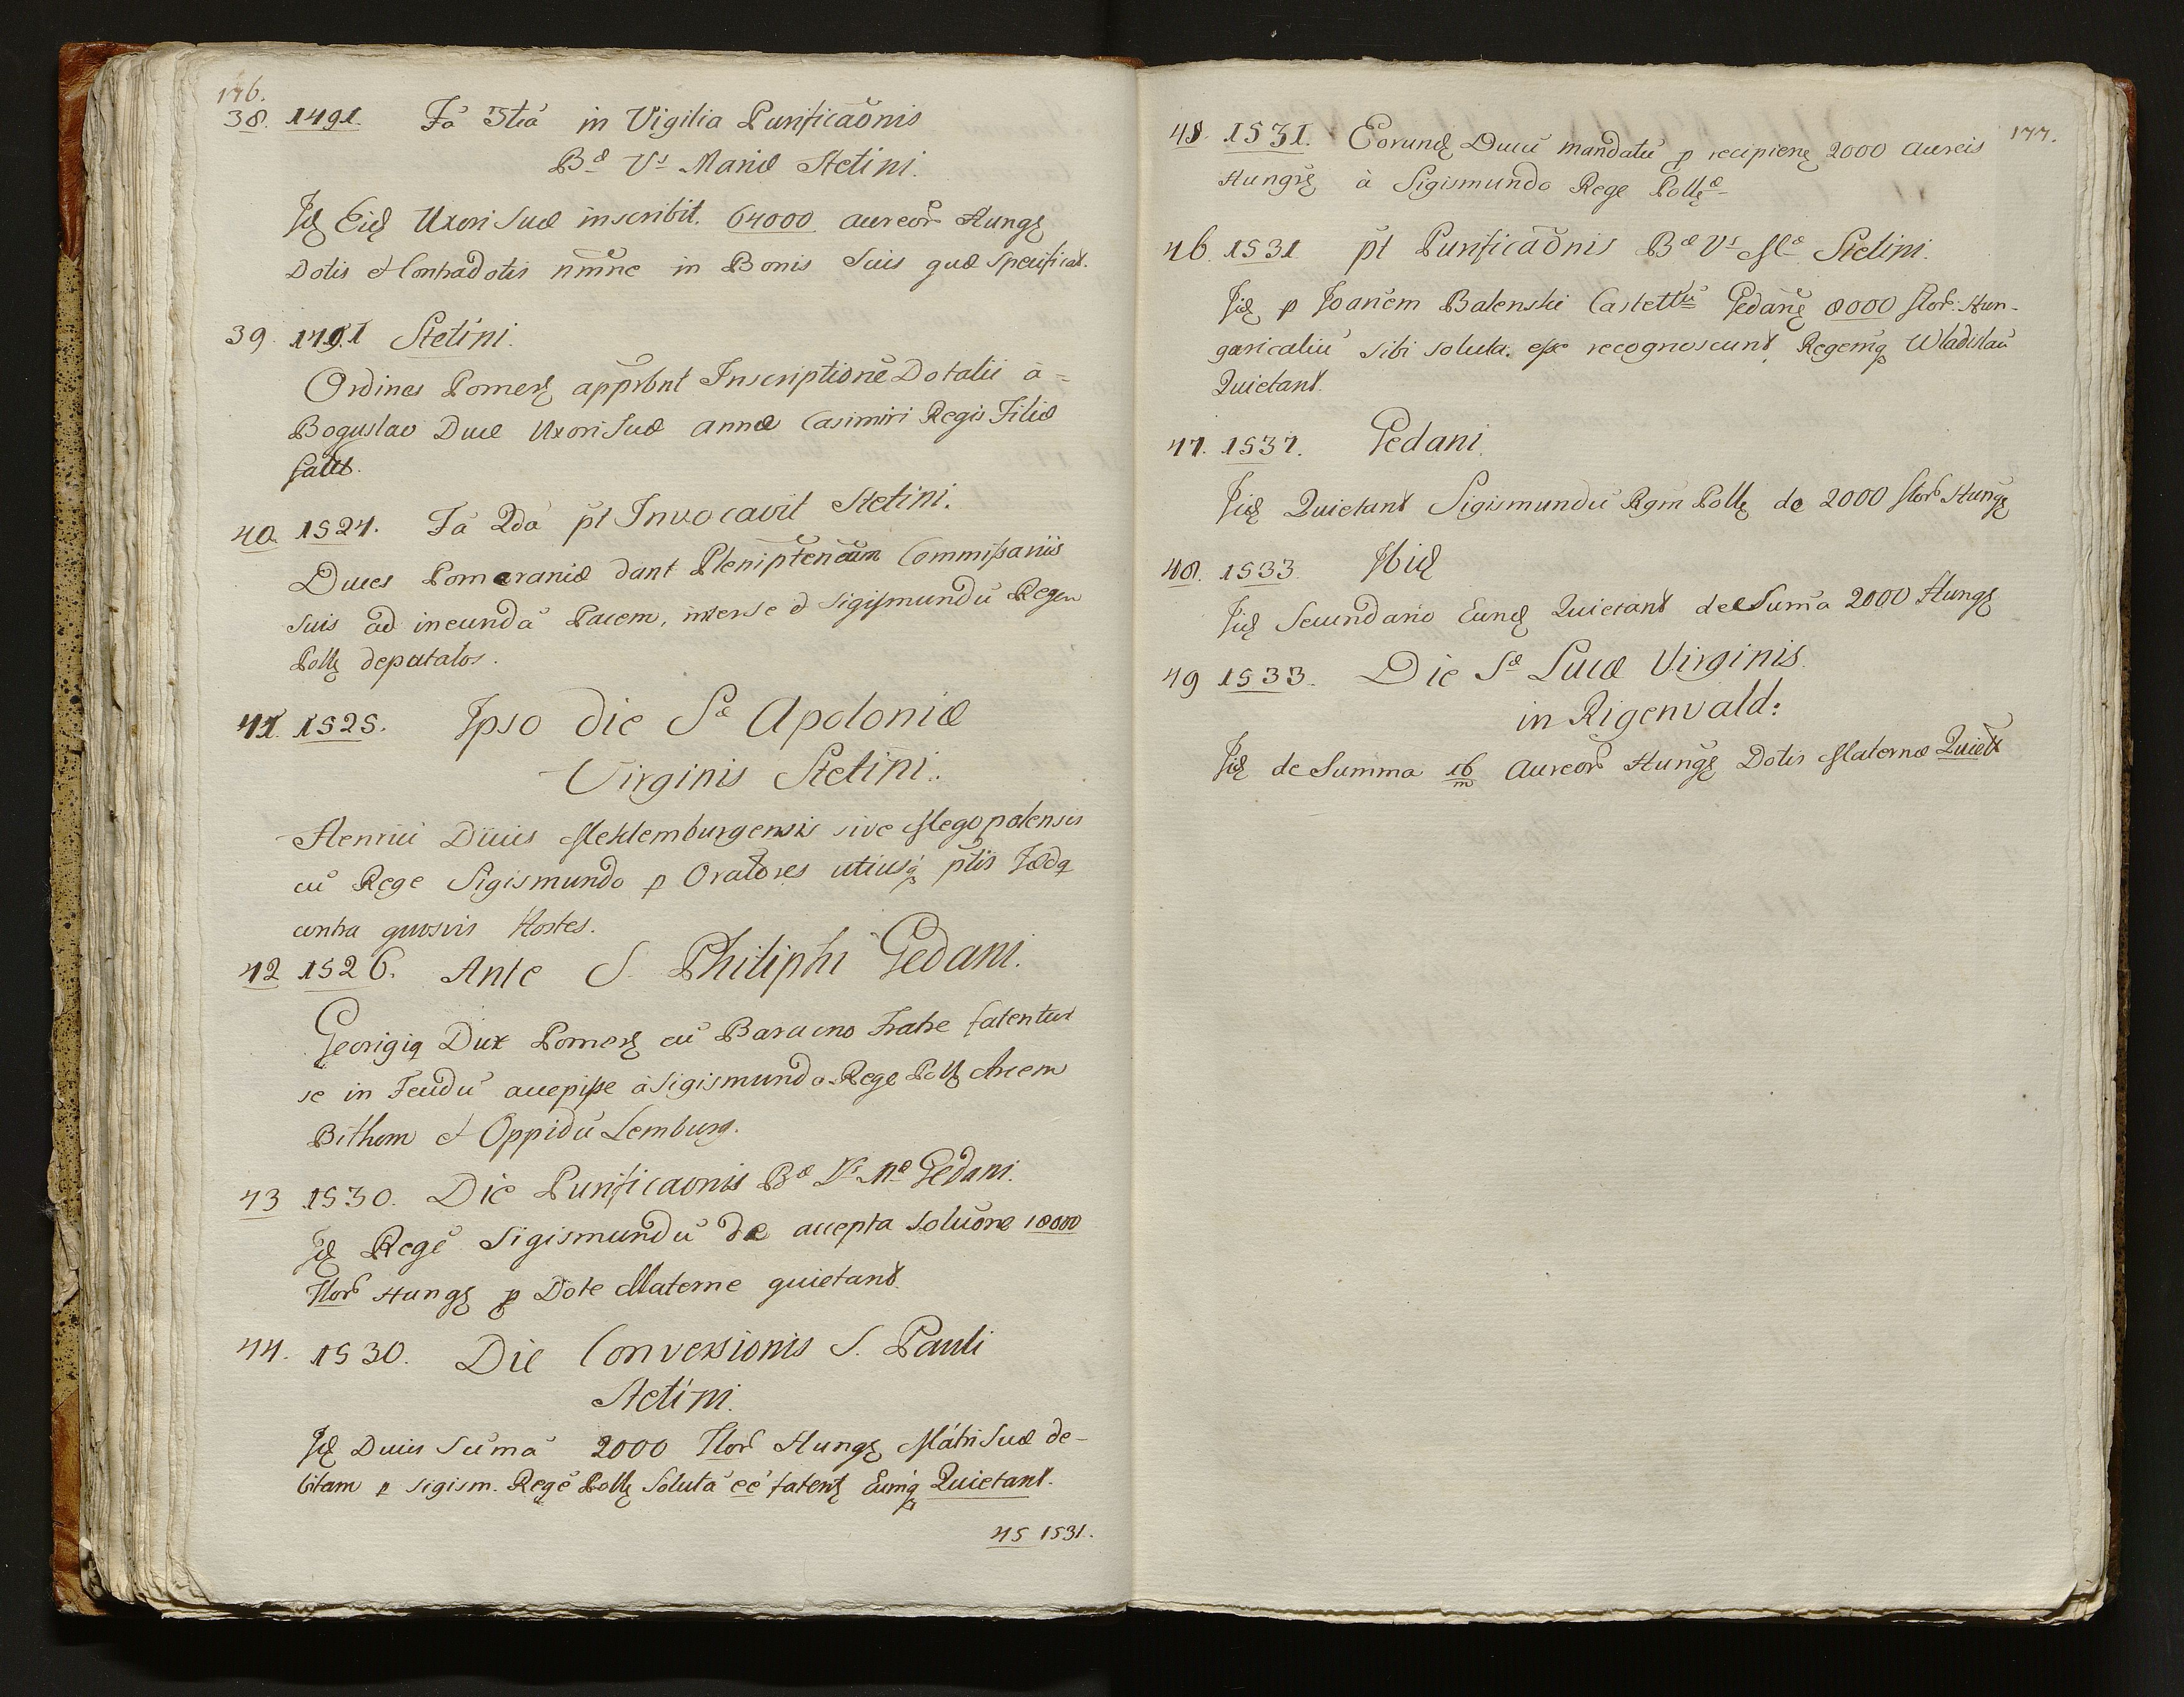 176.
38. 1491. Fā 3tiā in Vigilia Purificaōnis
Bæ Vs Mariæ Stetini.
Jd Eid Uxori Suæ inscribit. 64000. aureor Hung
Dotis et Contradotis nmīne in Bonis Suis quæ Specificat.
39. 1491 Stetini.
Ordines Pomer apprbnt Inscriptionē Dotalis à =
Boguslao Duce Uxori Suæ Annæ Casimiri Regis Filiæ
factā.
40. 1524. Fā 2dā pt Invocavit Stetini.
Duces Pomeraniæ dant Pleniptencām Commissariis
suis ad ineundā Pacem, inter se et Sigismundū Regem
Poll deputatos.
41. 1525. Ipso die Sæ Apoloniæ
Virginis Stetini.
Henrici Ducis Meklemburgensis sive Megopolensis
cū Rege Sigismundo p Oratores utiusq ptis Fædq
contra quosvis Hostes.
42 1526. Ante S. Philiphi Gedani.
Georgiq Dux Pomer cū Barucno Fratre fatentur
se in Feudū accepisse à Sigismundo Rege Poll Arcem
Bithom et Oppidū Lemburg.
43 1530. Die Purificaonis Bæ Vs Mæ Gedani.
Jd Regē Sigismundū de accepta Soluōne 18000
Flor Hung p Dote Materne quietant.
44. 1530. Die Conversionis S. Pauli
Stetini.
Jd Duces Sūmā 2000 Flor Hung Matri Suæ de-
bitam p Sigism. Regē Poll Solutā eē fatent Eumq Quietant.
45 1531.
177.
45. 1531. Eorund Ducū mandatū p recipiend 2000 aureis
Hungr à Sigismundo Rege Pollæ
46. 1531 pt Purificaōnis Bæ Vs Mæ Stetini.
Jid p Joañem Balenski Castellū Gedanē 8000 flor: Hun-
garicaliū sibi soluta. esse recognoscunt, Regemq Wladislaū
Quietant.
47. 1537. Gedani.
Jid Quietant Sigismundū Rgm Poll de 2000 flor Hung
48. 1533. Ibid
Jid Secundario Eund Quietant de Sum̄a 2000 Hung
49 1533. Die Sæ Luciæ Virginis.
in Rigenvald:
Jid de Summa 16/m Aureor Hung Dotis Maternæ Quiett